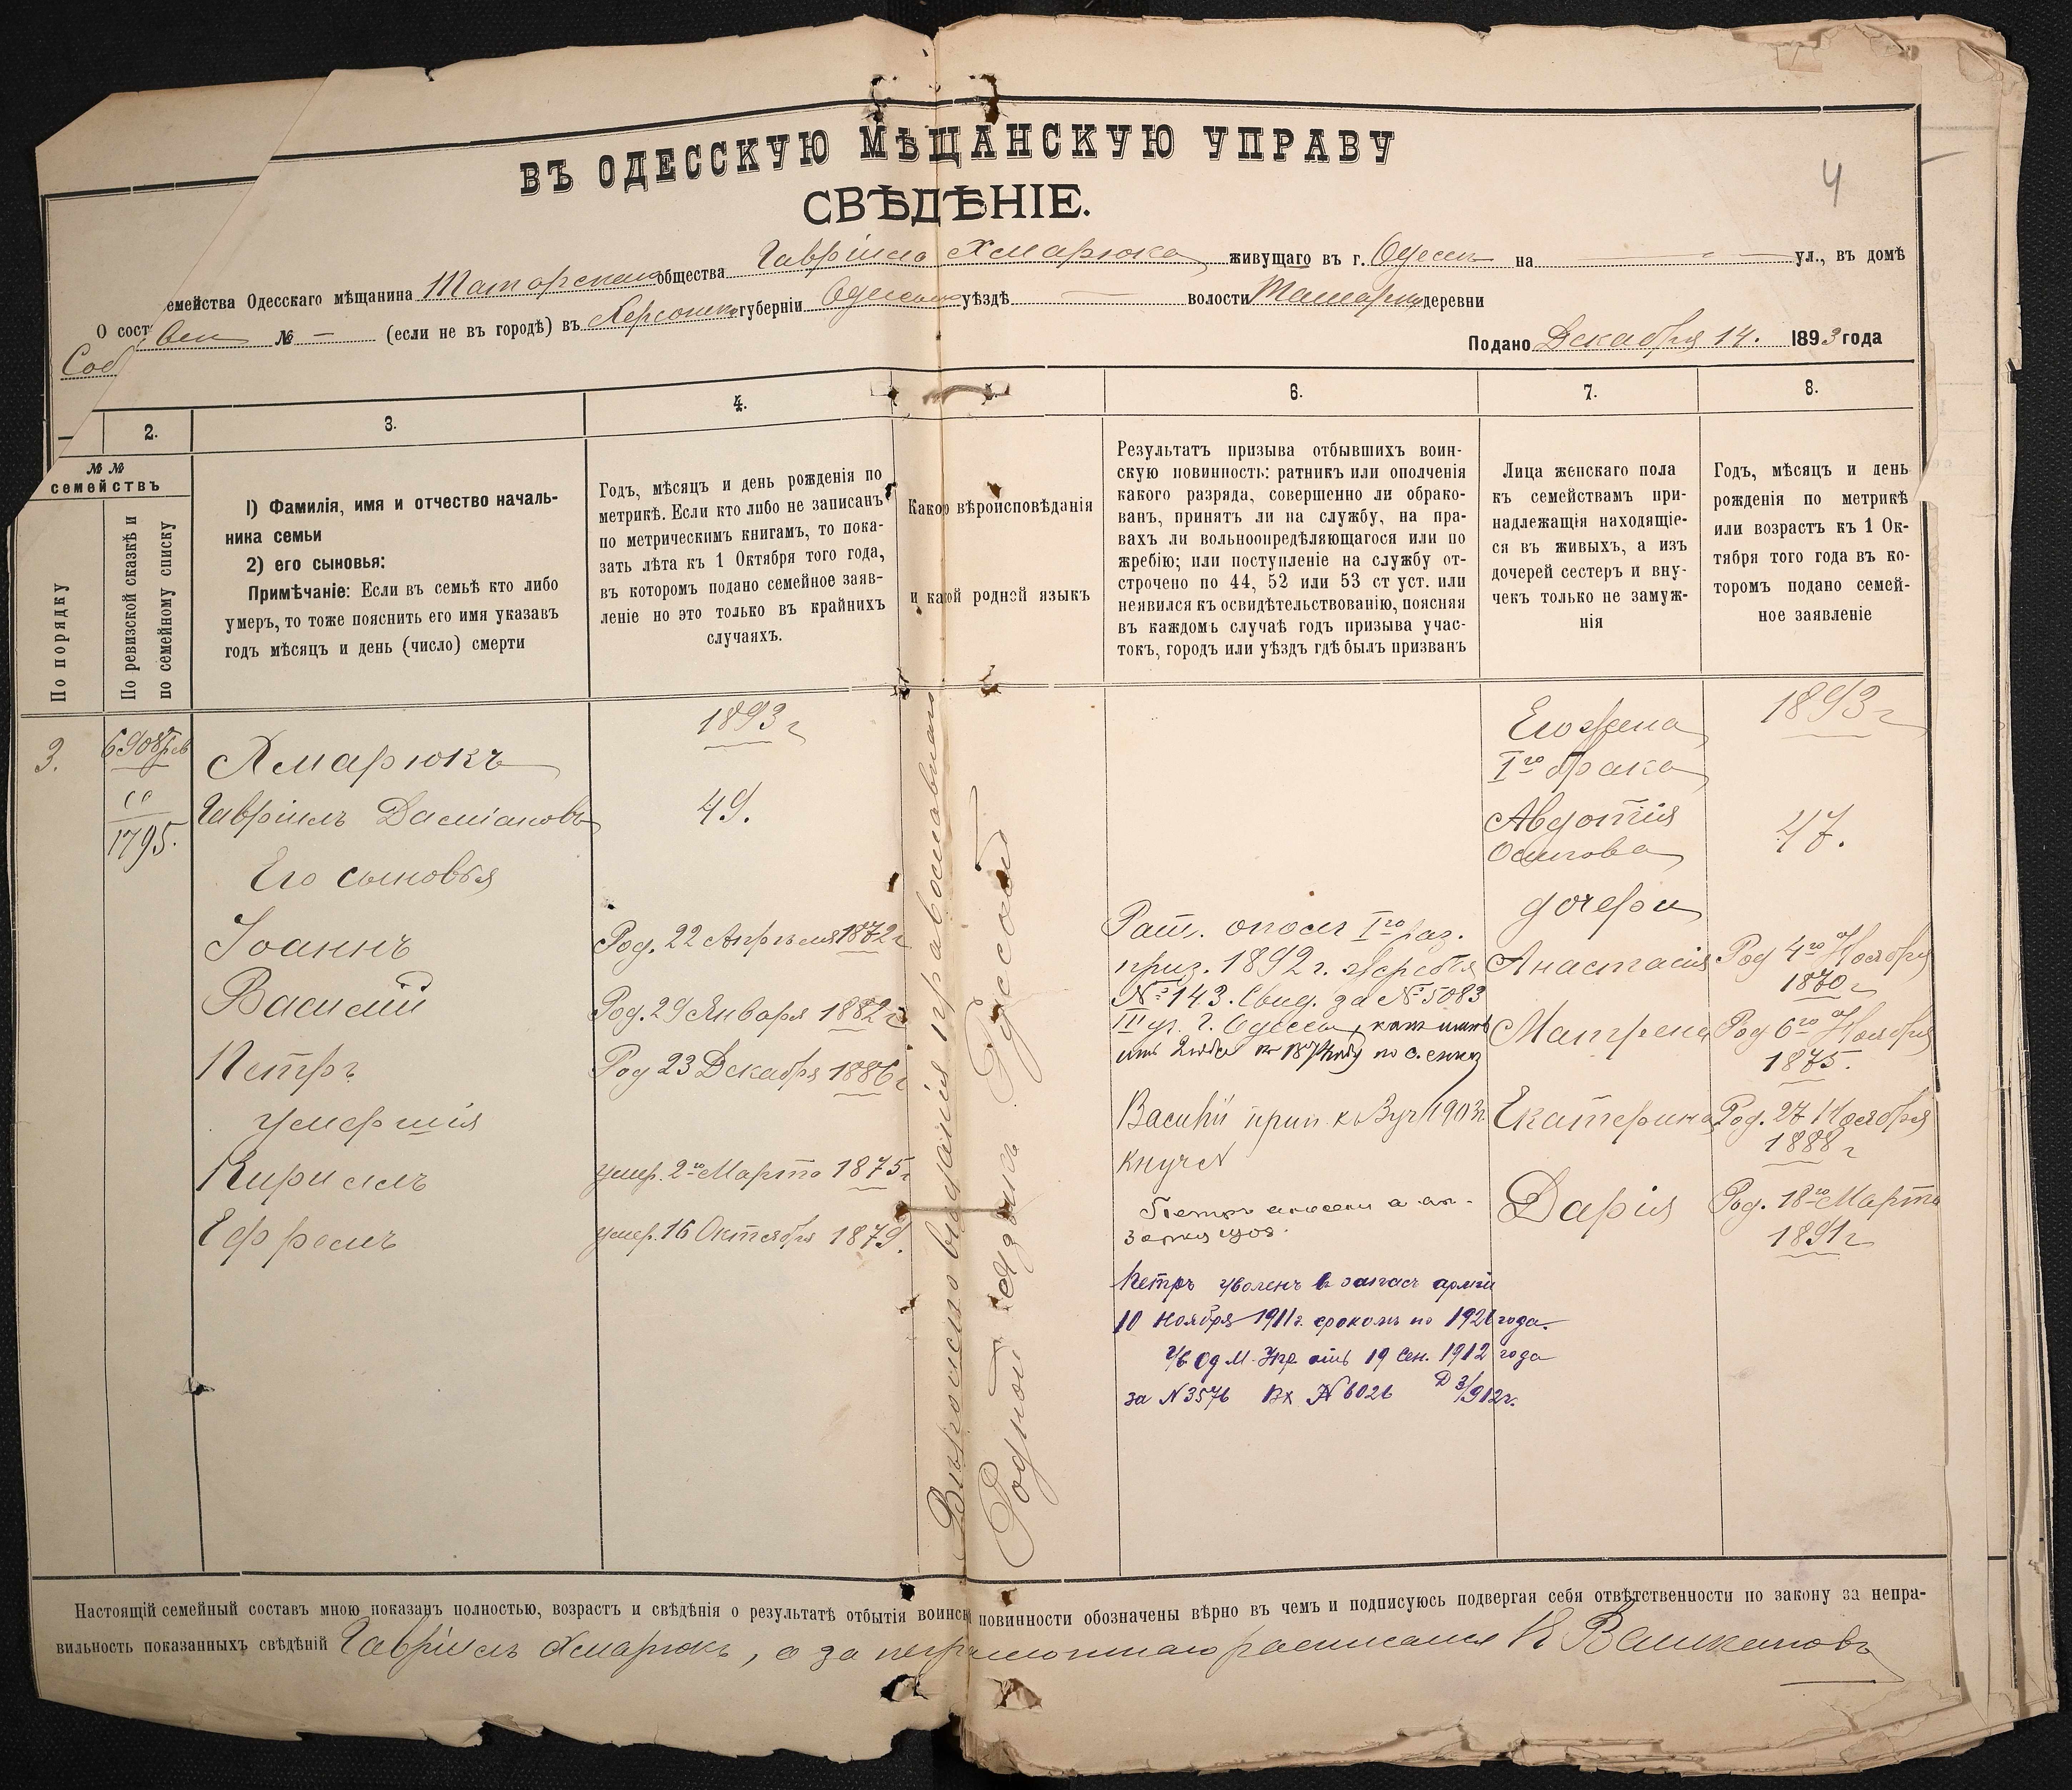 4
ВЪ ОДЕССКУЮ МѢЩАНСКУЮ УПРАВУ
СВѢДѢНІЕ.
О сост емейства Одесскаго мѣщанина Татарскаго общества Гавріила Хмарюка живущаго въ г. Одессѣ на — ул., въ домѣ
Соб вен № — (если не въ городѣ) въ Херсонской губерніи Одесскомъ уѣздѣ — волости Татарка деревни
Подано Декабря 14. 1893 года
2.
3.
4.
5.
6.
7.
8.
№ №
семействъ
По порядку
По ревизской сказкѣ и
по семейному списку
1) Фамилія, имя и отчество началь-
ника семьи
2) его сыновья:
Примѣчаніе: Если въ семьѣ кто либо
умеръ, то тоже пояснить его имя указавъ
годъ мѣсяцъ и день (число) смерти
Годъ, мѣсяцъ и день рожденія по
метрикѣ. Если кто либо не записанъ
по метрическимъ книгамъ, то пока-
зать лѣта къ 1 Октября того года,
въ которомъ подано семейное заяв-
леніе но это только въ крайнихъ
случаяхъ.
Какого вѣроисповѣданія
и какой родной языкъ
Результатъ призыва отбывшихъ воин-
скую повинность: ратникъ или ополченія
какого разряда, совершенно ли обрако-
ванъ, принятъ ли на службу, на пра-
вахъ ли вольноопредѣляющагося или по
жребію; или поступленіе на службу от-
строчено по 44, 52 или 53 ст уст. или
неявился къ освидѣтельствованію, поясняя
въ каждомъ случаѣ годъ призыва учас-
токъ, городъ или уѣздъ гдѣ былъ призванъ
Лица женскаго пола
къ семействамъ при-
надлежащія находящіе-
ся въ живыхъ, а изъ
дочерей сестеръ и вну-
чекъ только не замуж-
нія
Годъ, мѣсяцъ и день
рожденія по метрикѣ
или возрастъ къ 1 Ок-
тября того года въ ко-
торомъ подано семей-
ное заявленіе
3.
6908 рев
1795.
Хмарюкъ
Гавріилъ Даміановъ
Его сыновья
Іоаннъ
Василій
Петръ
умершія
Кириллъ
Ефремъ
1893 г
49.
Род. 22 Апрѣля 1872 г
Род. 29 Января 1882 г
Род 23 Декабря 1886 г
умер. 2го Марта 1875 г
умер. 16 Октября 1879.
Вѣроисповѣданія православнаго
Родной языкъ Русскій
Рат. опол Iго раз.
приз. 1892 г. жребія
№ 143. Свид. за № 5083
III уч. г. Одесса,
Василій прип. к 1903 г
Петръ
Петръ уволенъ в запасъ арміи
10 Ноября 1911 г. срокомъ по 1926 года.
Ув Од М. Упр отъ 19 Сен. 1912 года
за N 3576 Вх N 6026 Д 3/912 г.
Его жена
Iго брака
Авдотія
Осипова
дочери
Анастасія
Матрена
Екатерина
Дарія
1893 г
47.
Род 4го Ноября
1870 г
Род 6го Ноября
1875.
Род. 27 Ноября
1888 г
Род. 18го Марта
1891 г
Настоящій семейный составъ мною показанъ полностью, возрастъ и свѣдѣнія о результатѣ отбытія воинск повинности обозначены вѣрно въ чемъ и подписуюсь подвергая себя отвѣтственности по закону за непра-
вильность показанныхъ свѣдѣній Гавріилъ Хмарюкъ, а за неграмотнаго расписался